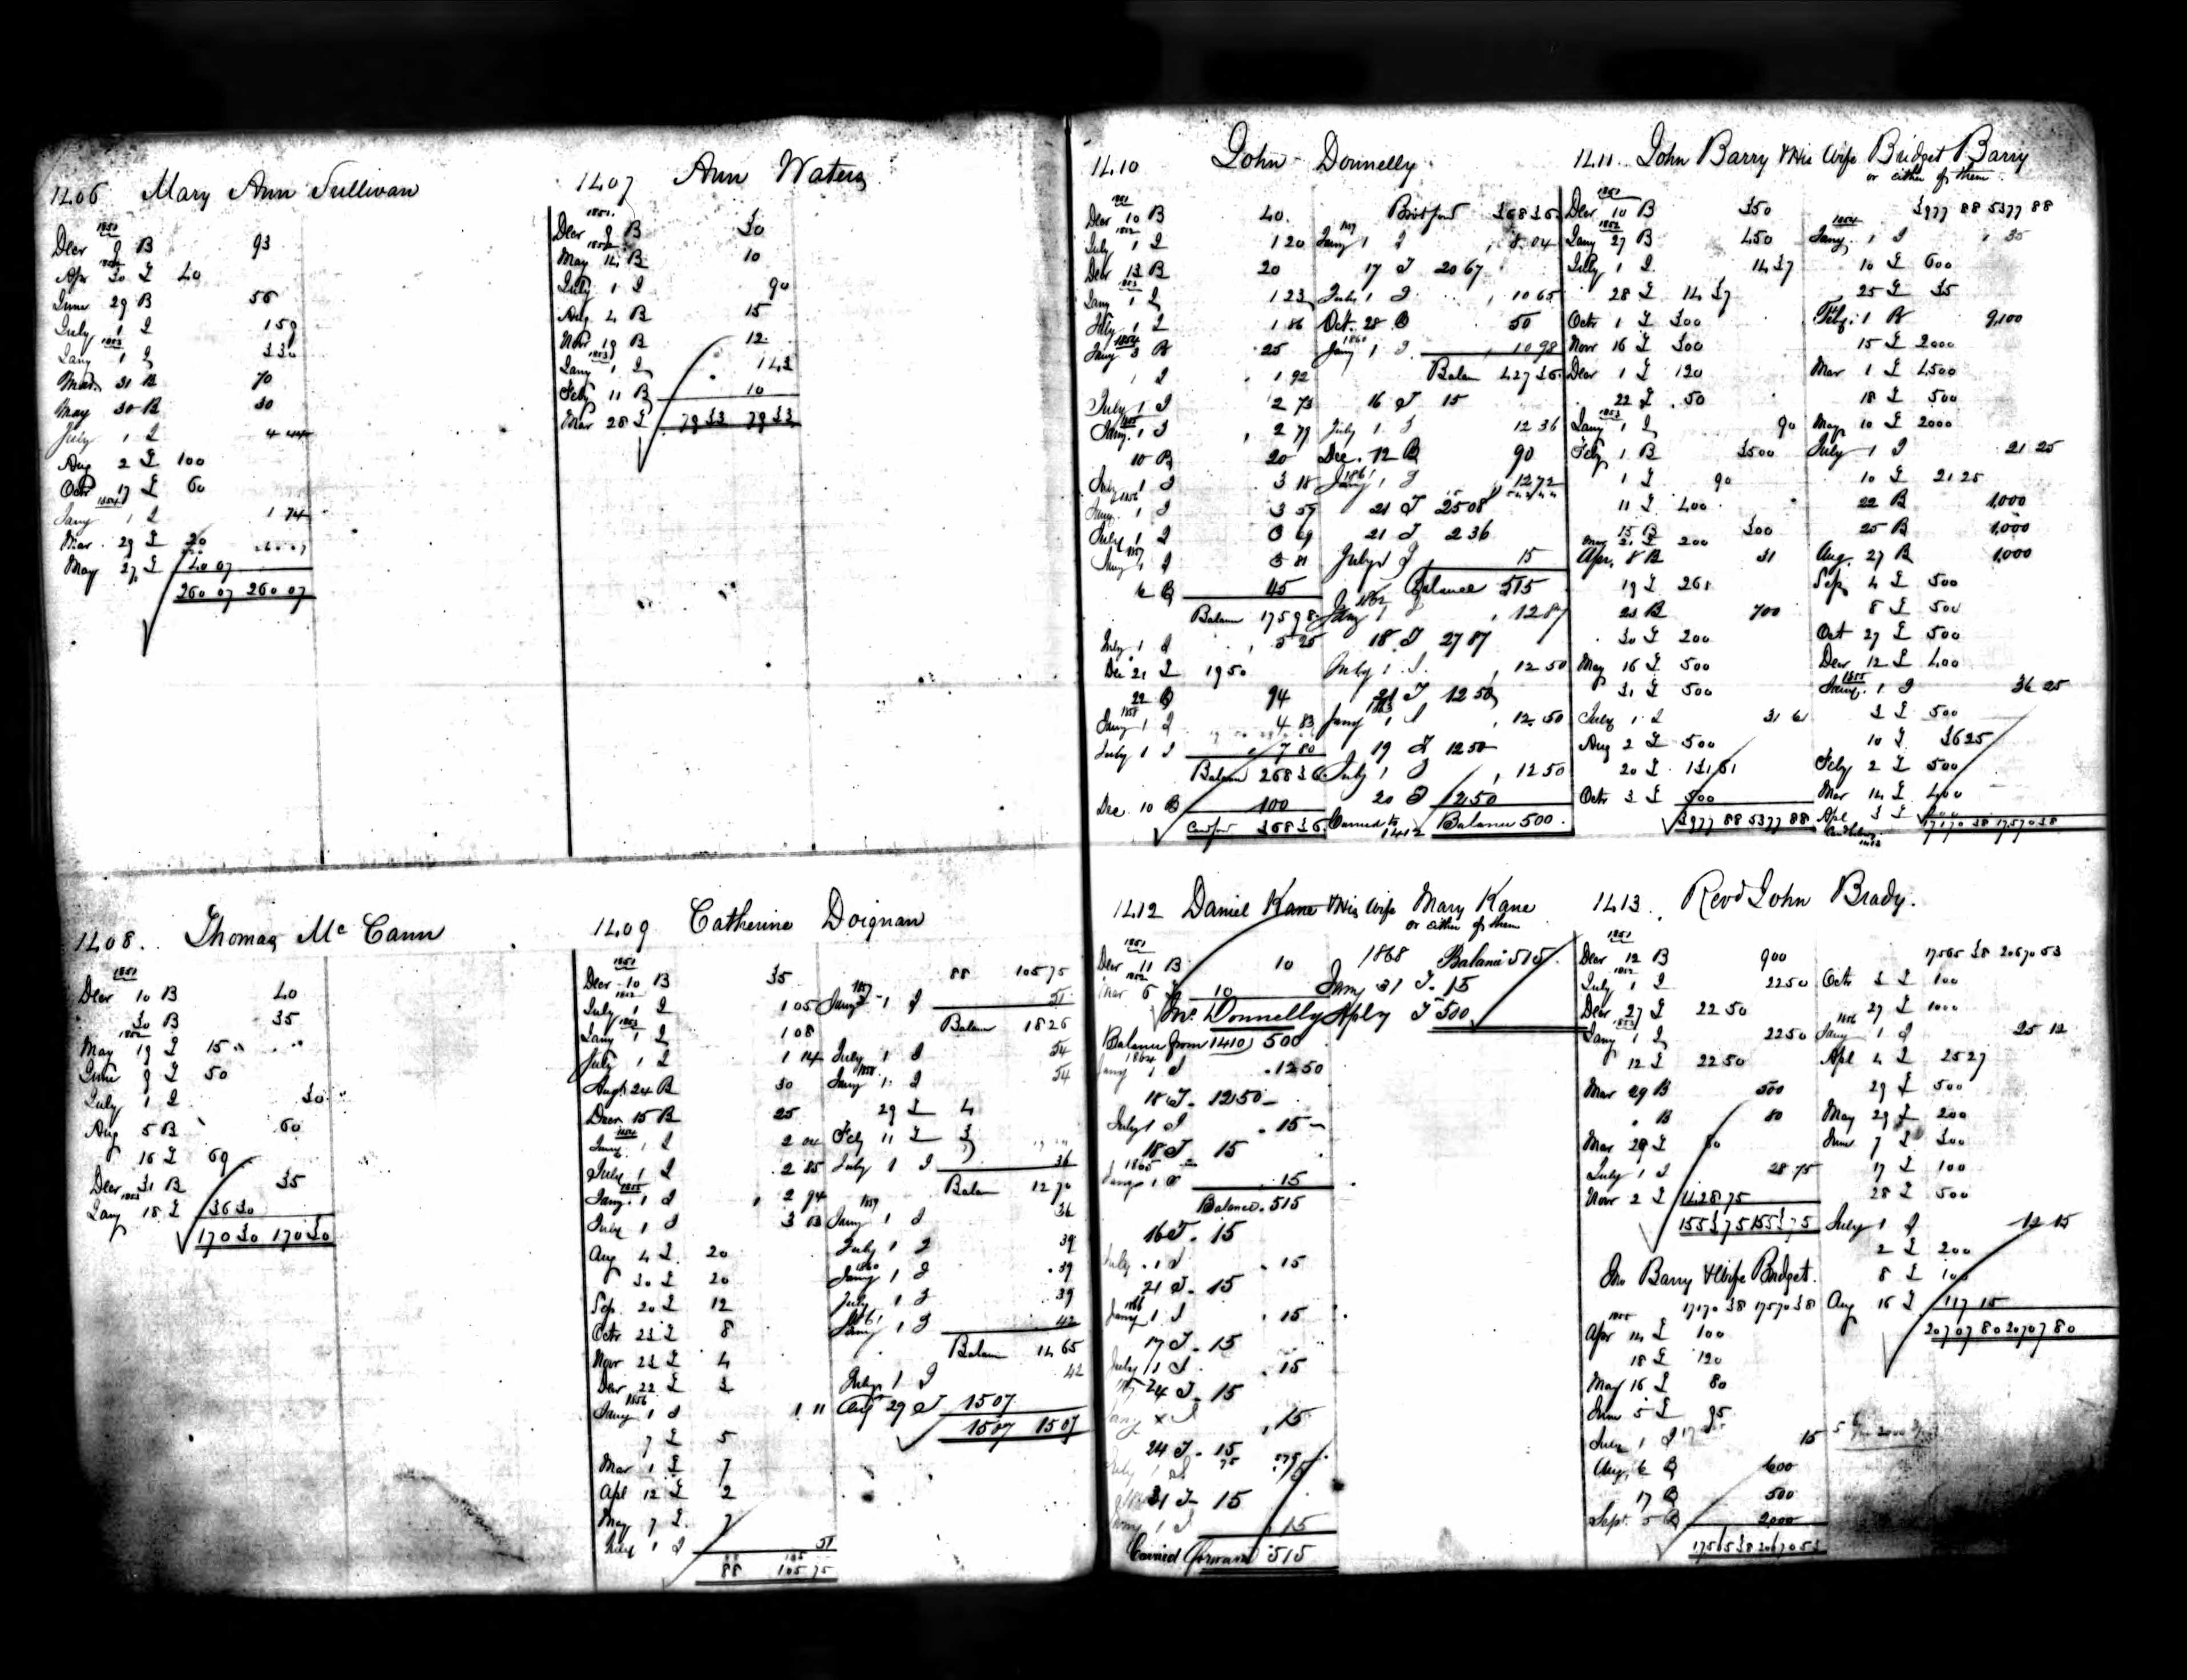 1406 Mary Ann Sullivan
1851
Decr 9 B 93
1852
Apr 30 £ 40
June 29 B 56
July 1 I 1 59
1853
Jany 1 I 3 30
Mar. 31 B 70
May 30 B 30
July 1 I 4 44
Aug 2 £ 100
Octr 17 £ 60
1854
Jany 1 I 1 74
Mar. 29 £ 20
May 27 £ 40 07
260 07 260 07
1407 Ann Waters
1851
Decr 9 B 30
1852
May 14 B 10
July 1 I 90
Aug 2 B 15
Novr 19 B 12
1853
Jany 1 I 1 43
Feby 11 B 10
Mar 28 £ 79 33 79 33
1408. Thomas Mc Cann
1851
Decr 10 B 40
30 B 35
1852
May 19 £ 15
June 9 £ 50
July 1 I 30
Aug 5 B 60
16 £ 69
Decr 31 B 35
1853
Jany 18 £ 36 30
170 30 170 30
1409 Catherine Doignan
1851
Decr 10 B 35
1852
July 1 I 1 05
1853
Jany 1 I 1 08
July 1 I 1 14
Augt 24 B 30
Decr 15 B 25
1854
Jany 1 I 2 04
July 1 I 2 85
1855
Jany. 1 I 2 94
July 1 I 3 03
Aug 4 £ 20
30 £ 20
Sep. 20 £ 12
Octr 23 £ 8
Novr 23 £ 4
Decr 22 £ 3
1856
Jany 1 I 1 11
7 £ 5
Mar 1 £ 7
Apl 12 £ 2
May 7 £ 7
July 1 I 51
88 105 75
88 105 75
1857
Jany 1 I 51
Balance 18 26
July 1 I 54
1858
Jany 1 I 54
29 £ 4
Feby 11 £ 3
July 1 I 36
Balan 12 70
1859
Jany 1 I 36
July 1 I 39
1860
Jany 1 I 39
July 1 I 39
1861
Jany 1 I 42
Balan 14 65
July 1 I 42
Aug 29 £ 15 07
15 07 15 07
1410 John Donnelly
1851
Decr 10 B 40
1852
July 1 I 1 20
Decr 13 B 20
1853
Jany 1 I 1 23
July 1 I 1 86
1854
Jany 3 B 25
1 I 1 92
July 1 I 2 73
1855
Jany. 1 I 2 79
10 B 20
July 1 I 3 18
1856
Jany. 1 I 3 57
July 1 I 3 69
1857
Jany 1 I 3 81
6 B 45
Balan 175 98
July 1 I 5 25
Dec 21 £ 19 50
22 B 94
1858
Jany 1 I 4 83
July 1 I 7 80
Balan 268 36
Dec. 10 B 100
Carr forr 368 36
Brot forr 368 36
1859
Jany 1 I 8.04
17 I 20 67
July 1 I 10 65
Oct. 28 B 50
1860
Jany 1 I 10 98
Balan 427 36
16 I 15
July 1 I 12 36
Dec. 12 B 90
1861
Jany 1 I 12 72
21 I 25 08
21 I 2 36
July 1 I 15
Balance 515
1862
Jany 1 I 12 87
18 I 27 87
July 1 I 12 50
21 I 12 50
1863
Jany 1 I 12 50
19 I 12 50
July 1 I 12 50
20 I 12 50
Carried to 1412 Balance 500.
1411. John Barry & His Wife Bridget Barry
or either of them
1851
Decr 10 B 350
1852
Jany 27 B 450
July 1 I 14 37
28 £ 14 37
Octr 1 £ 300
Novr 16 £ 300
Decr 1 £ 120
22 £ 50
1853
Jany 1 I 90
Feby 1 B 3500
1 £ 90
11 £ 400
15 B 300
Mar 21 £ 200
Apr. 8 B 31
19 £ 261
23 B 700
30 £ 200
May 16 £ 500
31 £ 500
July 1 I 31 61
Aug 2 £ 500
20 £ 131 61
Octr 3 £ 500
3977 88 5377 88
3977 88 5377 88
1854
Jany. 1 I 35
10 £ 600
25 £ 35
Feby. 1 B 9,100
15 £ 2000
Mar 1 £ 4500
18 £ 500
May 10 £ 2000
July 1 I 21 25
10 £ 21 25
22 B 1,000
25 B 1,000
Aug. 27 B 1,000
Sep 4 £ 500
8 £ 500
Oct 27 £ 500
Decr 12 £ 400
1855
Jany. 1 I 36 25
3 £ 500
10 £ 36 25
Feby 2 £ 500
Mar 14 £ 400
Apl 3 £
17170 38 17570 38
1412 Daniel Kane & His Wife Mary Kane
or either of them
1851
Decr 11 B 10
1852
Mar 6 £ 10
Jno Donnelly
Balance from 1410 500
1864
Jany 1 I 12 50
18 I 12 50
July 1 I 15
18 I 15
1865
Jany 1 I 15
Balance 515
16 I 15
July 1 I 15
21 I 15
1866
Jany 1 I 15
17 I 15
July 1 I 15
24 I 15
Jany 1 I 15
24 I 15
31 I 15
Jany 1 I 15
Carried forward 515
1868 Balance 515
Jany 31 I 15
Aply I 500
1413. Revd John Brady.
1851
Decr 12 B 900
1852
July 1 I 22 50
Decr 27 £ 22 50
1853
Jany 1 I 22 50
12 £ 22 50
Mar 29 B 500
B 80
Mar 29 £ 80
July 1 I 28 75
Novr 2 £ 1428 75
1553 75 1553 75
Jno Barry & Wife Bridget.
17170 38 17570 38
1855
Apr 14 £ 100
18 £ 120
May 16 £ 80
June 5 £ 95
July 1 I 15
Aug. 6 B 600
17 B 500
Sept. 5 B 2000
17565 38 20670 53
17565 38 20670 53
Octr 3 £ 100
27 £ 1000
1856
Jany 1 I 25 12
Apl 4 £ 25 27
29 £ 500
May 29 £ 200
June 7 £ 300
17 £ 100
28 £ 500
July 1 I 12 15
2 £ 200
8 £ 100
Aug 16 £ 117 15
20707 80 20707 80